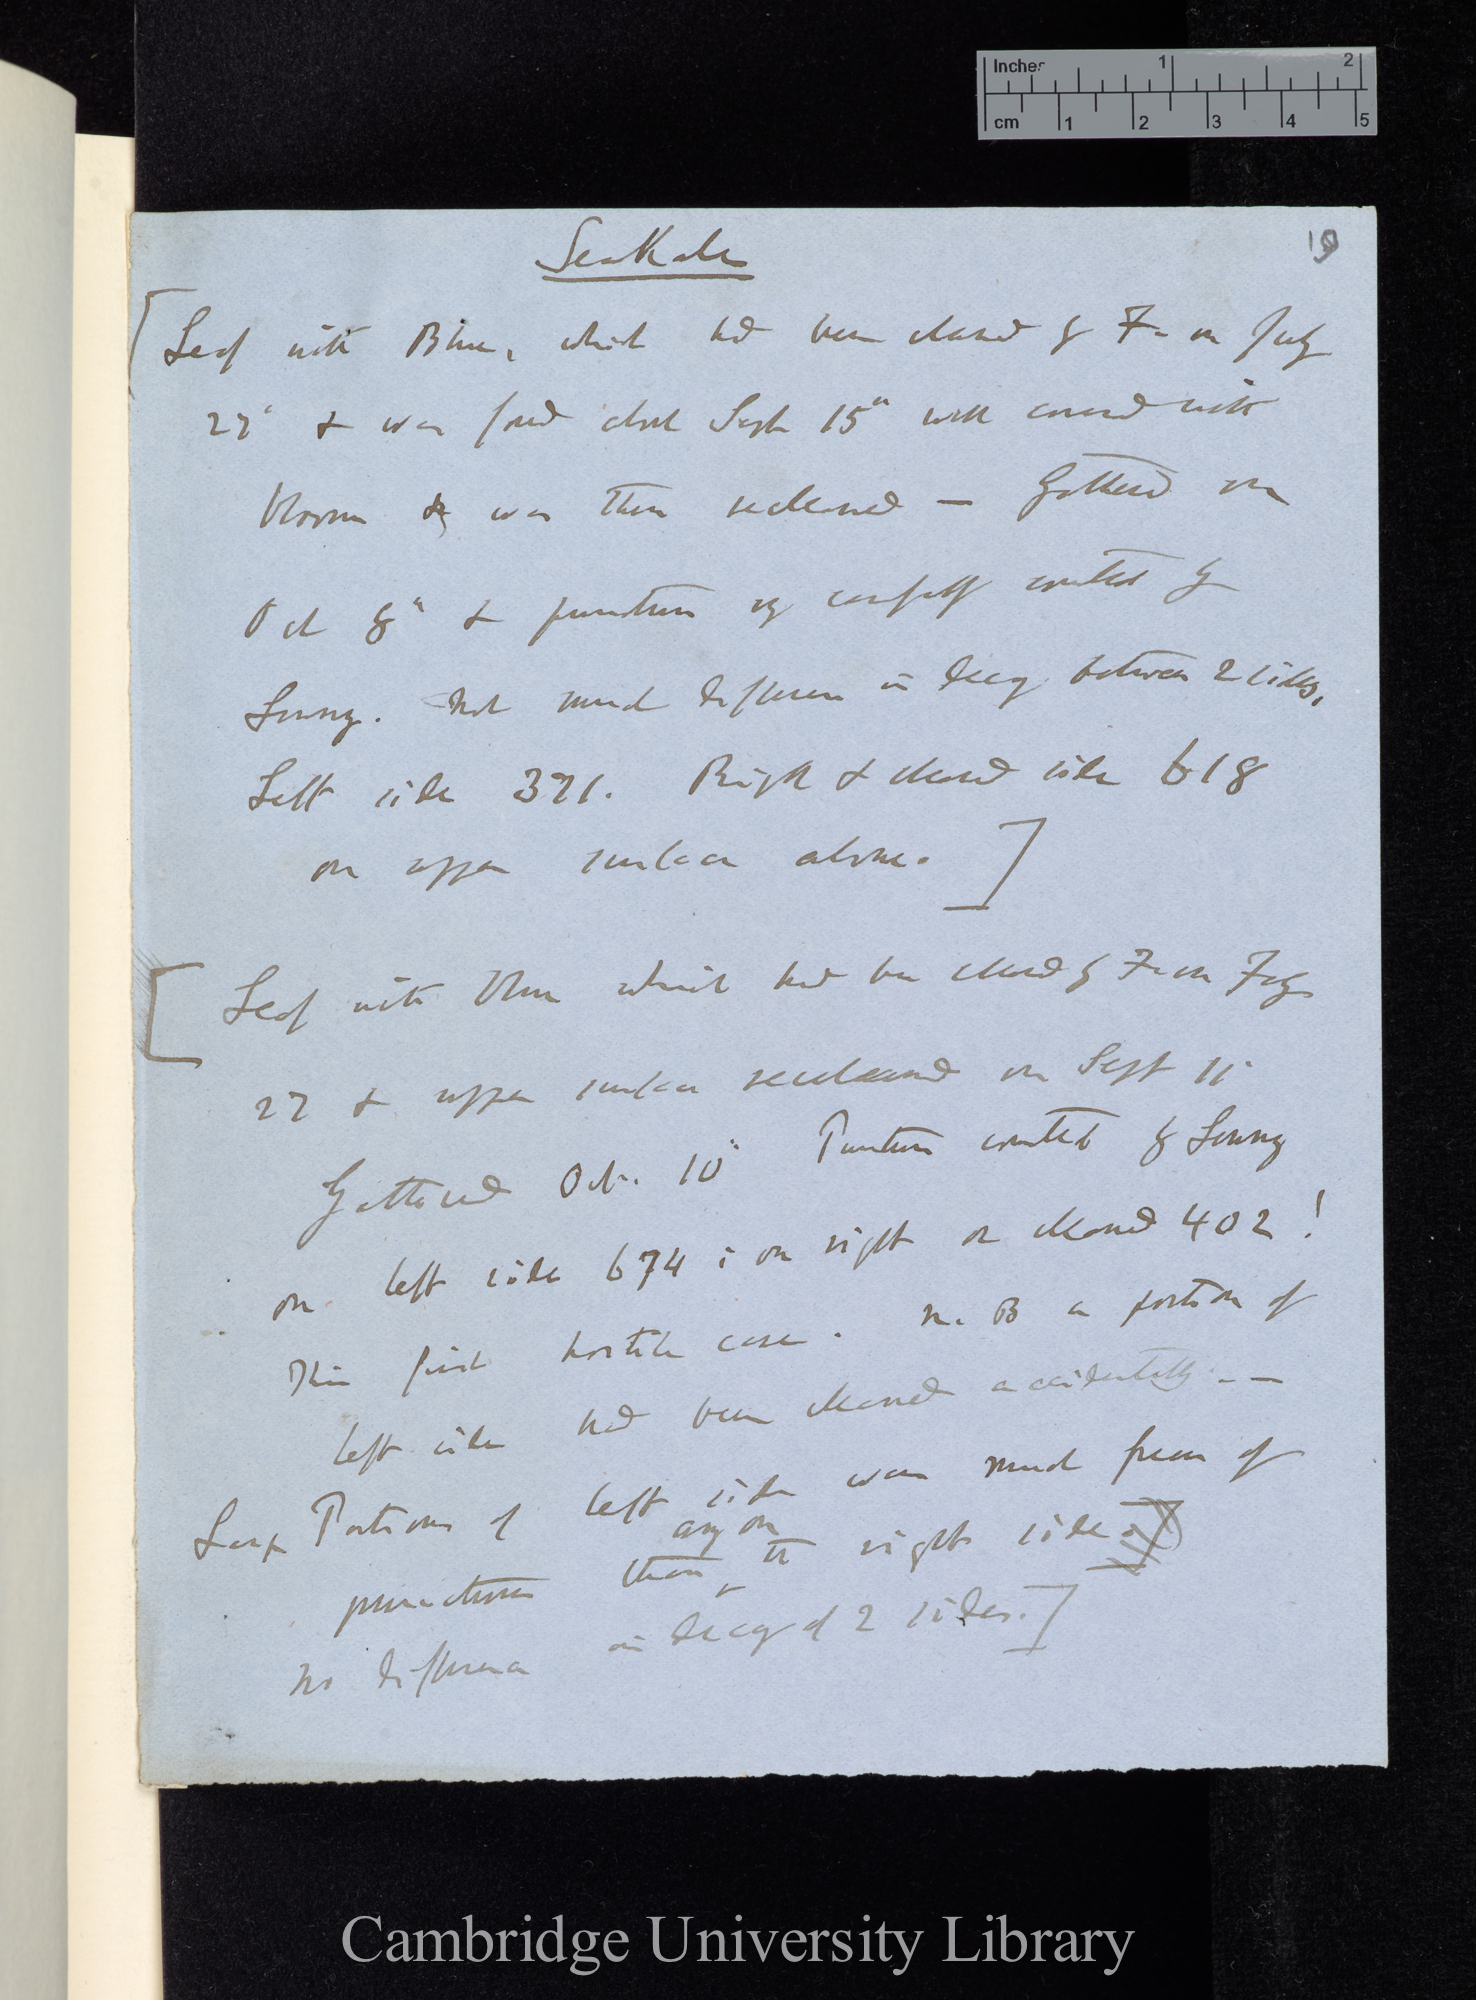 Inches 1 2
cm 1 2 3 4 5
Sea Kale
19
[Leaf with Blue, which had been cleaned by F. on July
27th & was found about Sept 15th well covered with
bloom & was then recleaned — Gathered on
Oct 8th & punctures carefully counted by
Lenny. Not much difference in decay between 2 sides.
Left side 371. Right & cleaned side 618
on upper surface alone.]
[Leaf with blue which had been cleaned by F. on July
27 & upper surface recleaned on Sept 15
Gathered Oct. 10th Punctures counted by Lenny
on left side 674; on right or cleaned 402!
This first hostile case. N.B a portion of
left side had been cleaned accidentally. — —
Large Portions of left side was much freer of
punctures than any on the right side.]
No difference in decay of 2 sides.]
Cambridge University Library